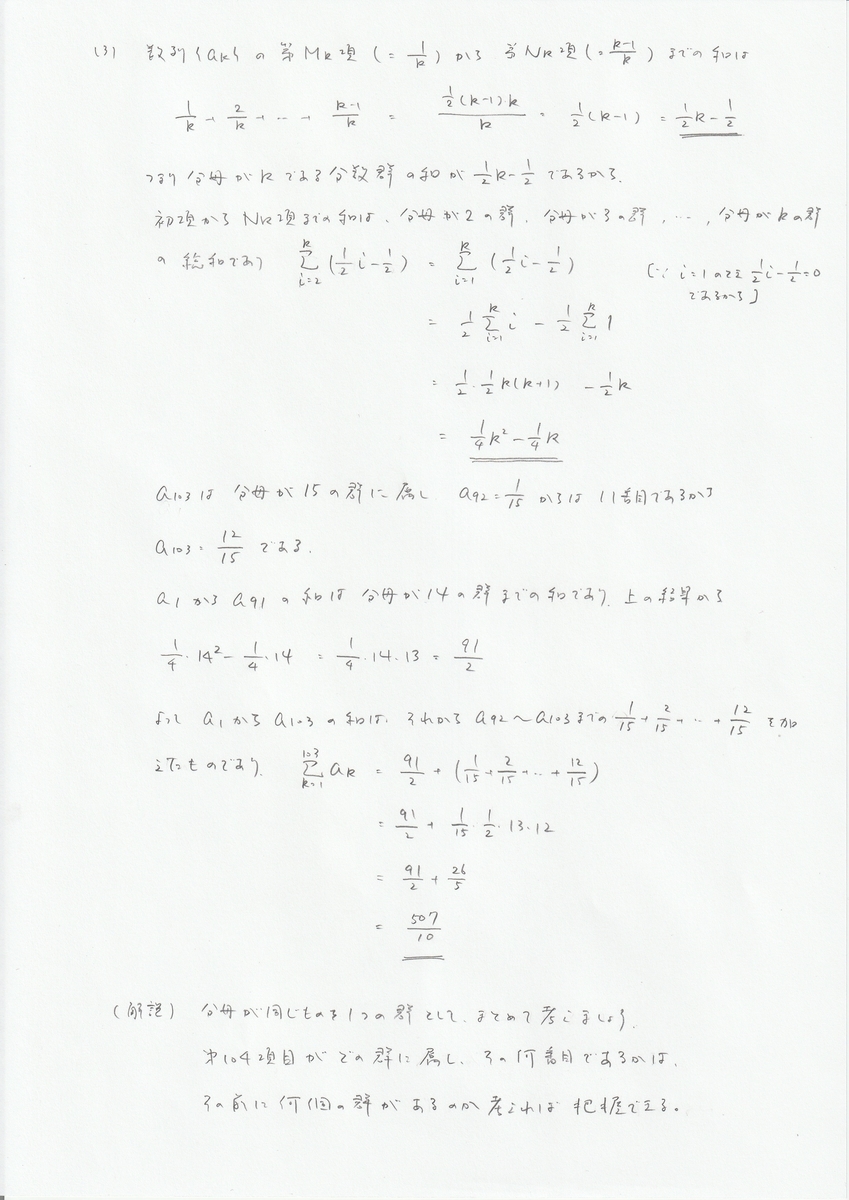 (3) 数列{ak}の第Mk項(=1/k)から第Nk項(=k-1/k)までの和は
1/k + 2/k + … + k-1/k = 1/2(k-1)k/k = 1/2(k-1) = 1/2k - 1/2
つまり分母がkである分数群の和が1/2k-1/2であるから、
初項からNk項までの和は、分母が2の群、分母が3の群、…、分母がkの群
の総和であり Σ[i=2→k](1/2i-1/2) = Σ[i=1→k](1/2i-1/2) [∵ i=1のとき1/2i-1/2=0
であるから]
= 1/2 Σ[i=1→k] i - 1/2 Σ[i=1→k] 1
= 1/2・1/2k(k+1) - 1/2k
= 1/4k² - 1/4k
a103は分母が15の群に属し a92=1/15からは11番目であるから
a103 = 12/15 である。
a1からa91の和は分母が14の群までの和であり、上の結果から
1/4・14² - 1/4・14 = 1/4・14・13 = 91/2
よってa1からa103の和は、それからa92〜a103までの1/15+2/15+…+12/15を加
えたものであり、 Σ[k=1→103] ak = 91/2 + (1/15+2/15+…+12/15)
= 91/2 + 1/15・1/2・13・12
= 91/2 + 26/5
= 507/10
(解説) 分母が同じものを1つの群として、まとめて考えましょう。
第104項目がどの群に属し、その何番目であるかは、
その前に何個の群があるのか考えれば把握できる。